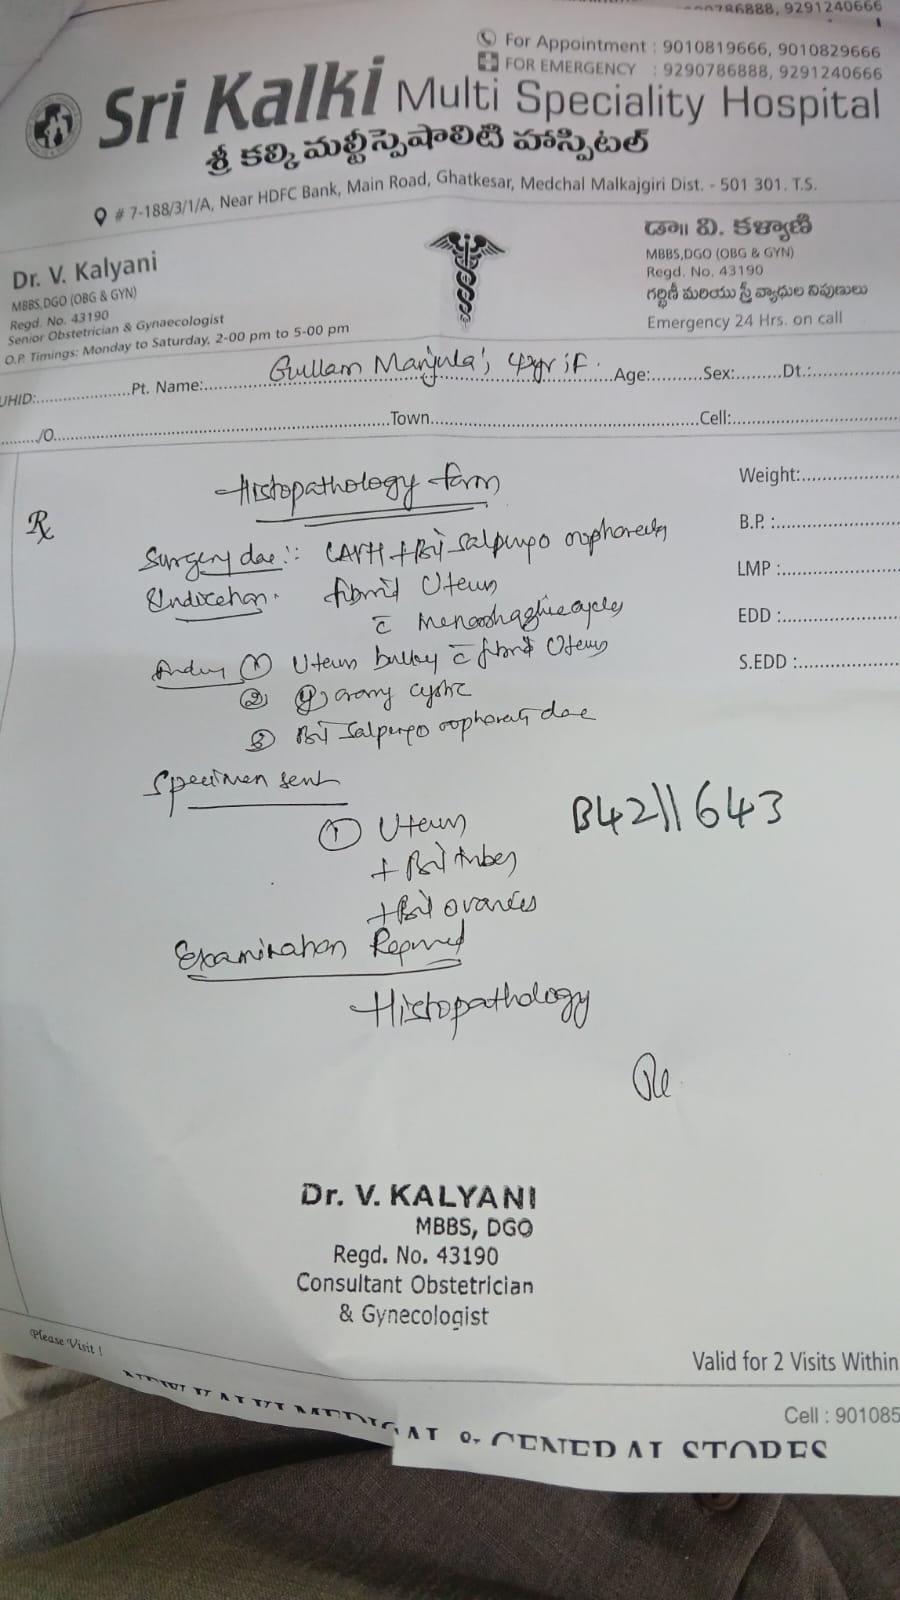 786888, 9291240666
For Appointment : 9010819666, 9010829666
FOR EMERGENCY : 9290786888, 9291240666
Sri Kalki Multi Speciality Hospital
శ్రీ కల్కి మల్టీస్పెషాలిటి హాస్పిటల్
# 7-188/3/1/A, Near HDFC Bank, Main Road, Ghatkesar, Medchal Malkajgiri Dist. - 501 301. T.S.
Dr. V. Kalyani
MBBS,DGO (OBG & GYN)
Regd. No. 43190
Senior Obstetrician & Gynaecologist
O.P. Timings: Monday to Saturday, 2-00 pm to 5-00 pm
డా॥ వి. కళ్యాణి
MBBS,DGO (OBG & GYN)
Regd. No. 43190
గర్భిణీ మరియు స్త్రీ వ్యాధుల నిపుణులు
Emergency 24 Hrs. on call
UHID:..........Pt. Name: Gullam Manjula, Age:..........Sex:........Dt.:..........
/O..........Town..........Cell:..........
Rx
Histopathology form
Weight:..........
B.P. :..........
LMP :..........
EDD :..........
S.EDD :..........
Surgery done :
Indication. fibroid Uterus
c̄ Menorrhagic cycles
① Uterus bulky c̄ fibroid Uterus
② ovary cystic
③ Bil Salpingo oophorectomy done
Specimen sent
① Uterus
+ Bil tubes
+ Bil ovaries
B4211643
Examination Required
Histopathology
Dr. V. KALYANI
MBBS, DGO
Regd. No. 43190
Consultant Obstetrician
& Gynecologist
Please Visit !
Valid for 2 Visits Within
Cell : 901085
MEDICAL & GENERAL STORES